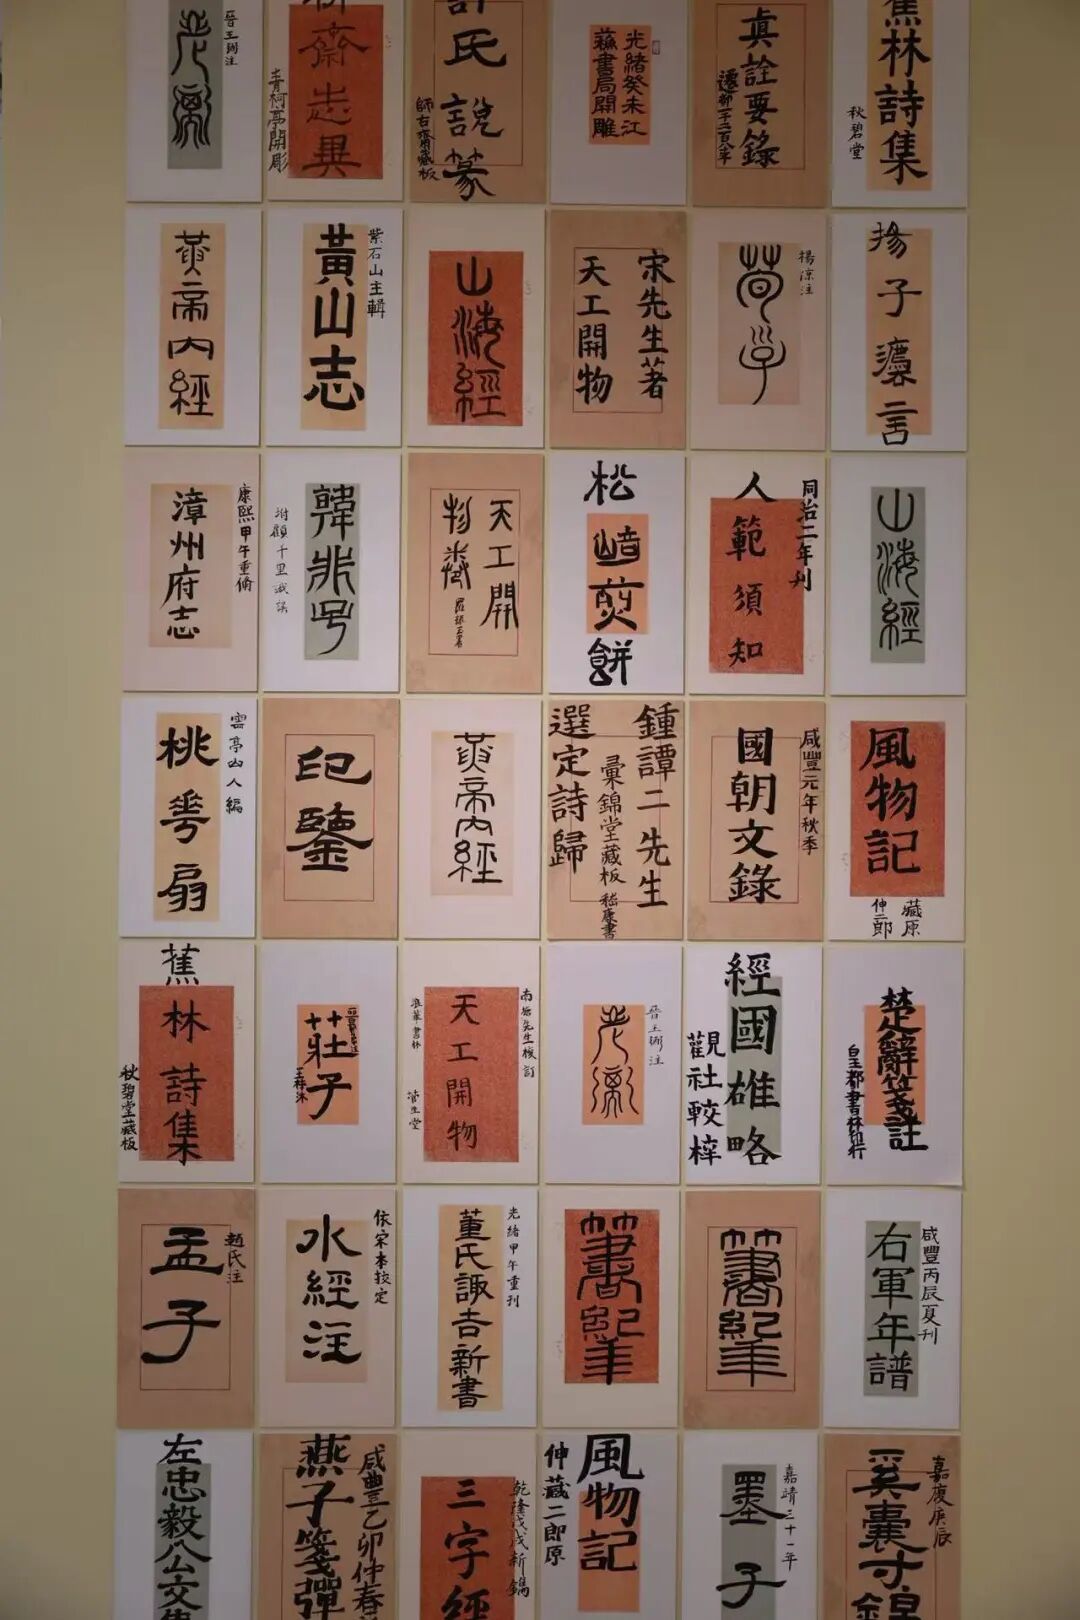 老子
晉王弼注
聊齋志異
青柯亭開彫
許氏說篆
師古齋藏板
光緒癸未江
蘇書局開雕
真詮要錄
遷都一千二百八年
蕉林詩集
秋碧堂
黃帝內經
黃山志
紫石山主輯
山海經
宋先生著
天工開物
荀子
楊倞注
揚子灋言
漳州府志
康熙甲午重脩
韓非子
坿顧千里識誤
天工開
物
松崎煎餅
人範須知
同治二年刊
山海經
桃花扇
雲亭山人編
印鑒
黃帝內經
鍾譚二先生
選定詩歸
彙錦堂藏板
嵇康書
國朝文錄
咸豐元年秋季
風物記
藏原
伸二郎
蕉林詩集
秋碧堂藏板
莊子
王梓沐
天工開物
南
先生校訂
書林
管生堂
老子
晉王弼注
經國雄略
觀社較梓
楚辭箋註
皇都書林印行
孟子
趙氏注
水經注
依宋本較定
董氏諏吉新書
光緒甲午重刊
書紀年
書紀年
右軍年譜
咸豐丙辰夏刊
左忠毅公文集
燕子箋彈
咸豐乙卯仲春
三字經
乾隆戊戌新鐫
風物記
伸藏二郎原
墨子
嘉靖三十一年
奚囊寸錦
嘉慶庚辰